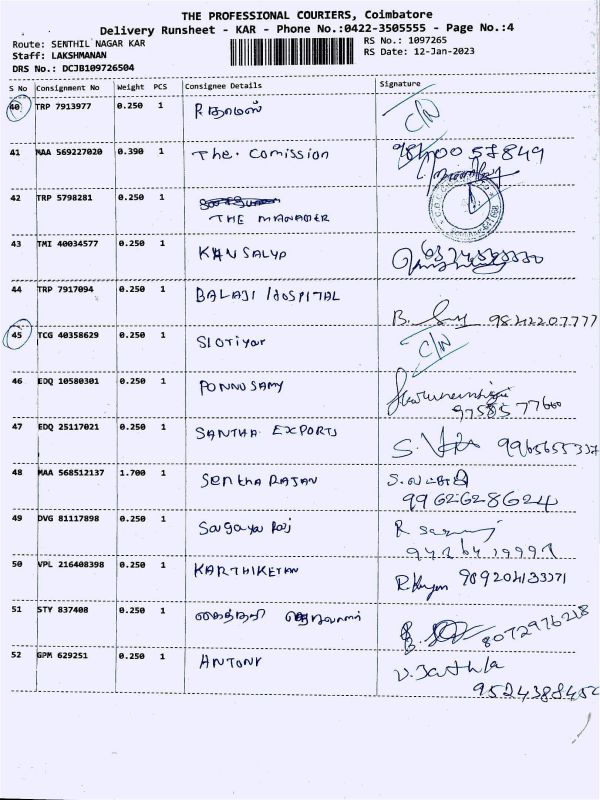 THE PROFESSIONAL COURIERS, Coimbatore
Delivery Runsheet - KAR - Phone No.:0422-3505555 - Page No.:4
Route: SENTHIL NAGAR KAR
RS No.: 1097265
Staff: LAKSHMANAN
RS Date: 12-Jan-2023
DRS No.: DCJB109726504
S No Consignment No Weight PCS Consignee Details Signature
40 TRP 7913977 0.250 1 R தாமஸ் C/N
41 MAA 569227020 0.390 1 The. Comission
42 TRP 5798281 0.250 1 THE MANAGER
43 TMI 40034577 0.250 1 KANSALYA
44 TRP 7917094 0.250 1 BALAJI HOSPITAL B. 9842207777
45 TCG 40358629 0.250 1 Slotiyar C/N
46 EDQ 10580301 0.250 1 PONNUSAMY
47 EDQ 25117021 0.250 1 SANTHA EXPORTS
48 MAA 568512137 1.700 1 Sentha RAJAN 9962628624
49 DVG 81117898 0.250 1 Sagaya Raj
50 VPL 216408398 0.250 1 KARTHIKEYAN
51 STY 837408 0.250 1 8072976218
52 GPM 629251 0.250 1 ANTONY